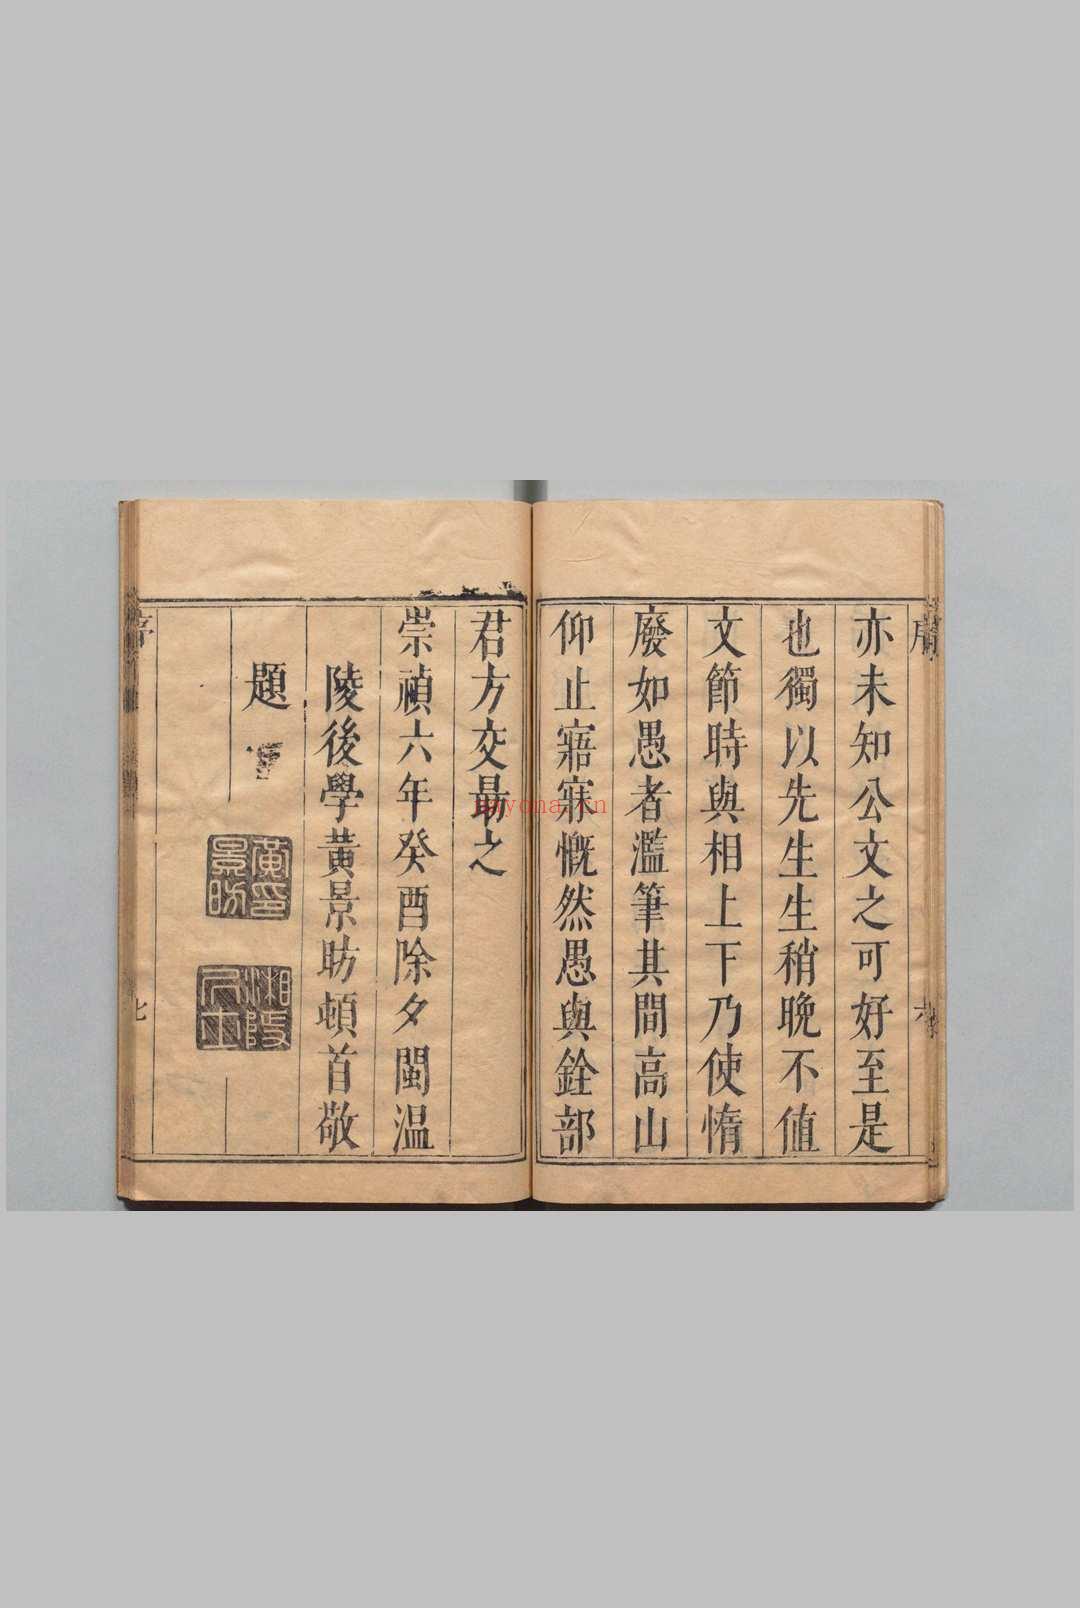 亦未知公文之可好至是
也獨以先生生稍晩不值
文節時與相上下乃使惰
廢如愚者濫筆其間高山
仰止寤寐慨然愚與銓部
君方交勗之
崇禎六年癸酉除夕閩温
陵後學黃景昉頓首敬
題
黃景昉印
湘隱居士
序
七
序
六
nayona.cn